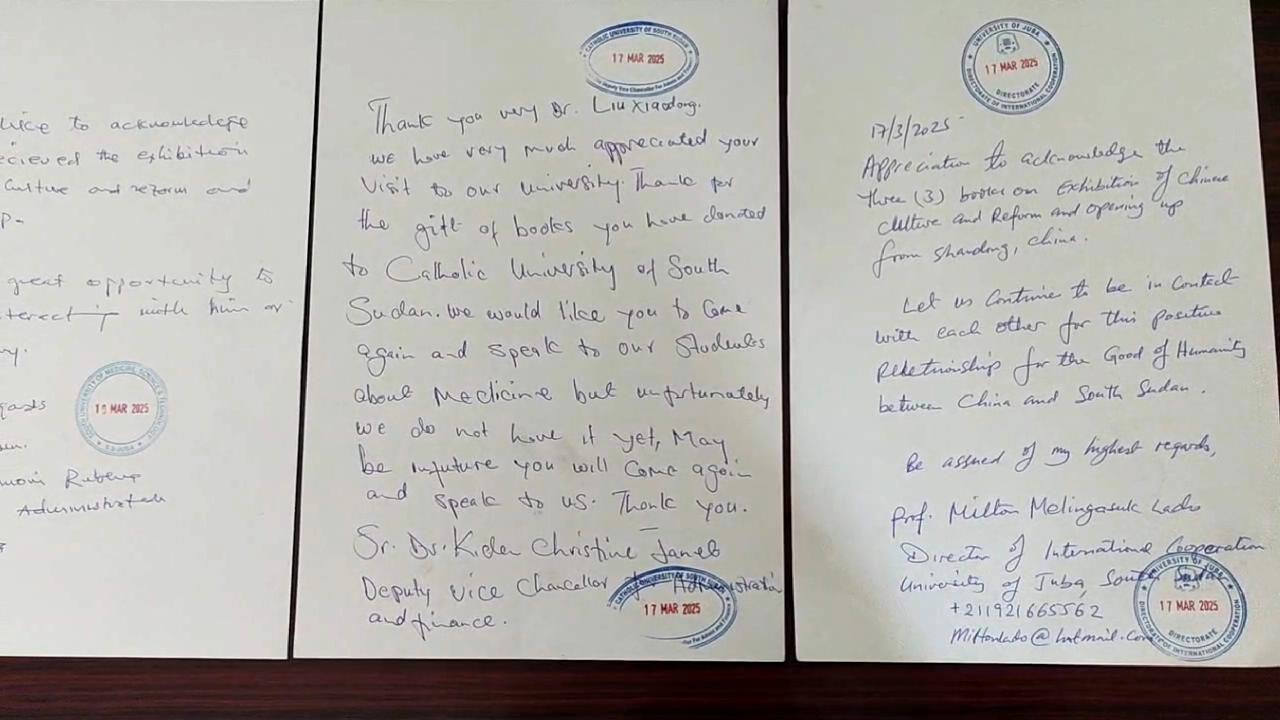 vice to acknowledge
recieved the exhibition
culture and reform and
great opportunity to
with him or
SOUTH UNIVERSITY OF MEDICINE, SCIENCE & TECHNOLOGY
MAR 2025
Administrator
CATHOLIC UNIVERSITY OF SOUTH SUDAN
17 MAR 2025
Deputy Vice Chancellor For Admin and Finance
Thank you very Dr. Liu Xiaodong.
we have very much appreciated your
visit to our university. Thank for
the gift of books you have donated
to Catholic University of South
Sudan. we would like you to come
again and speak to our students
about Medicine but unfortunately
we do not have it yet, May
be infuture you will come again
and speak to us. Thank you.
Sr. Dr. Kiden Christine
Deputy vice Chancellor for Administration
and finance.
CATHOLIC UNIVERSITY OF SOUTH SUDAN
17 MAR 2025
For Admin and Finance
UNIVERSITY OF JUBA
17 MAR 2025
DIRECTORATE
DIRECTORATE OF INTERNATIONAL COOPERATION
17/3/2025
Appreciation to acknowledge the
three (3) books on Exhibition of Chinese
culture and Reform and opening up
from Shandong, China.
Let us continue to be in contact
with each other for this positive
relationship for the Good of Humanity
between China and South Sudan.
Be assured of my highest regards,
Prof. Milton Melingasuk Lado
Director of International Cooperation
University of Juba, South Sudan
+211921665562
Miltonlado@hotmail.com
UNIVERSITY OF JUBA
17 MAR 2025
DIRECTORATE
DIRECTORATE OF INTERNATIONAL COOPERATION